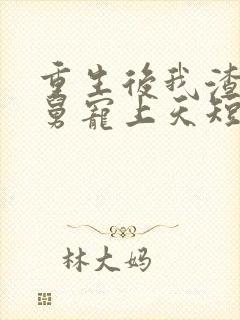 重生後我渣
舅寵上天短
林大妈